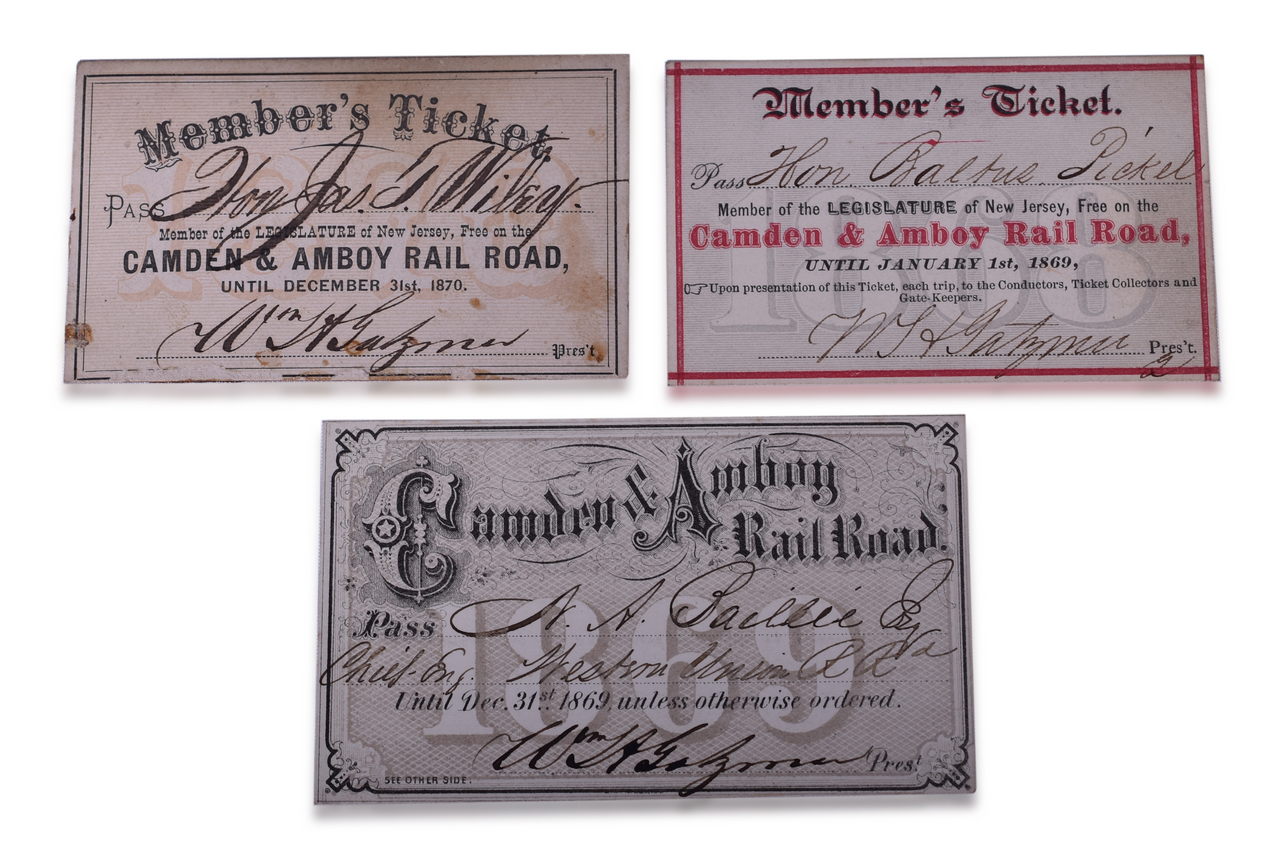 Member's Ticket.
1870
PASS Hon Jas. T. Wiley.
Member of the LEGISLATURE of New Jersey, Free on the
CAMDEN & AMBOY RAIL ROAD,
UNTIL DECEMBER 31st, 1870.
Wm H Gatzmer Pres't.
Member's Ticket.
Pass Hon. Baltus Pickel
1868
Member of the LEGISLATURE of New Jersey, Free on the
Camden & Amboy Rail Road,
UNTIL JANUARY 1st, 1869,
☞ Upon presentation of this Ticket, each trip, to the Conductors, Ticket Collectors and
Gate-Keepers.
Wm H Gatzmer Pres't.
2
Camden & Amboy
Rail Road.
Pass N. A. Baillie Esq
1869
Chief Eng. Western Union R Rd
Until Dec. 31st 1869, unless otherwise ordered.
Wm H Gatzmer Prest
SEE OTHER SIDE.